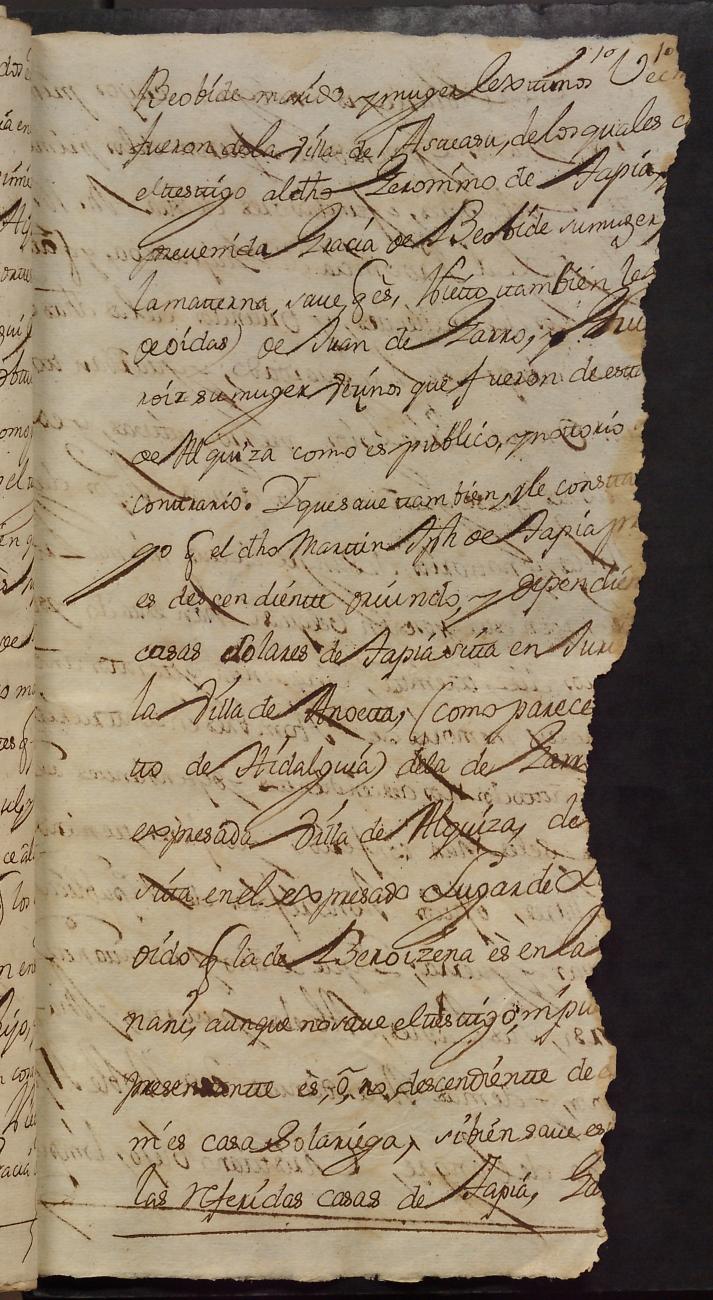 Beobide marido, y muger lexitimos Vecin
fueron de la Villa de Asteasu, de los quales c
el testigo al dho Geronimo de Tapia,
prevenida Gracia de Beobide su muger,
la materna, save q̃ es, Vietto tambien
de oidas) de Juan de Zarro, y
roiz su muger Vecinos que fueron de esta
de Alquiza como es publico, y notorio
contrario. Y que save tambien, y le consta
go q̃ el dho Martin Jph de Tapia pr
es descendiente oriundo, y dependien
casas solares de Tapia sita en
la Villa de Anoetta, (como parece
tto de Hidalguia) dela de Zarr
expresada Villa de Alquiza, de
sitta en el expresado Lugar de L
oido q̃ la de Beroizena es en la
nani, aunque no save el testigo,
presentante es, ō, no, descendiente de
ni es casa Solariega, si bien save es
las referidas casas de Tapia, Za